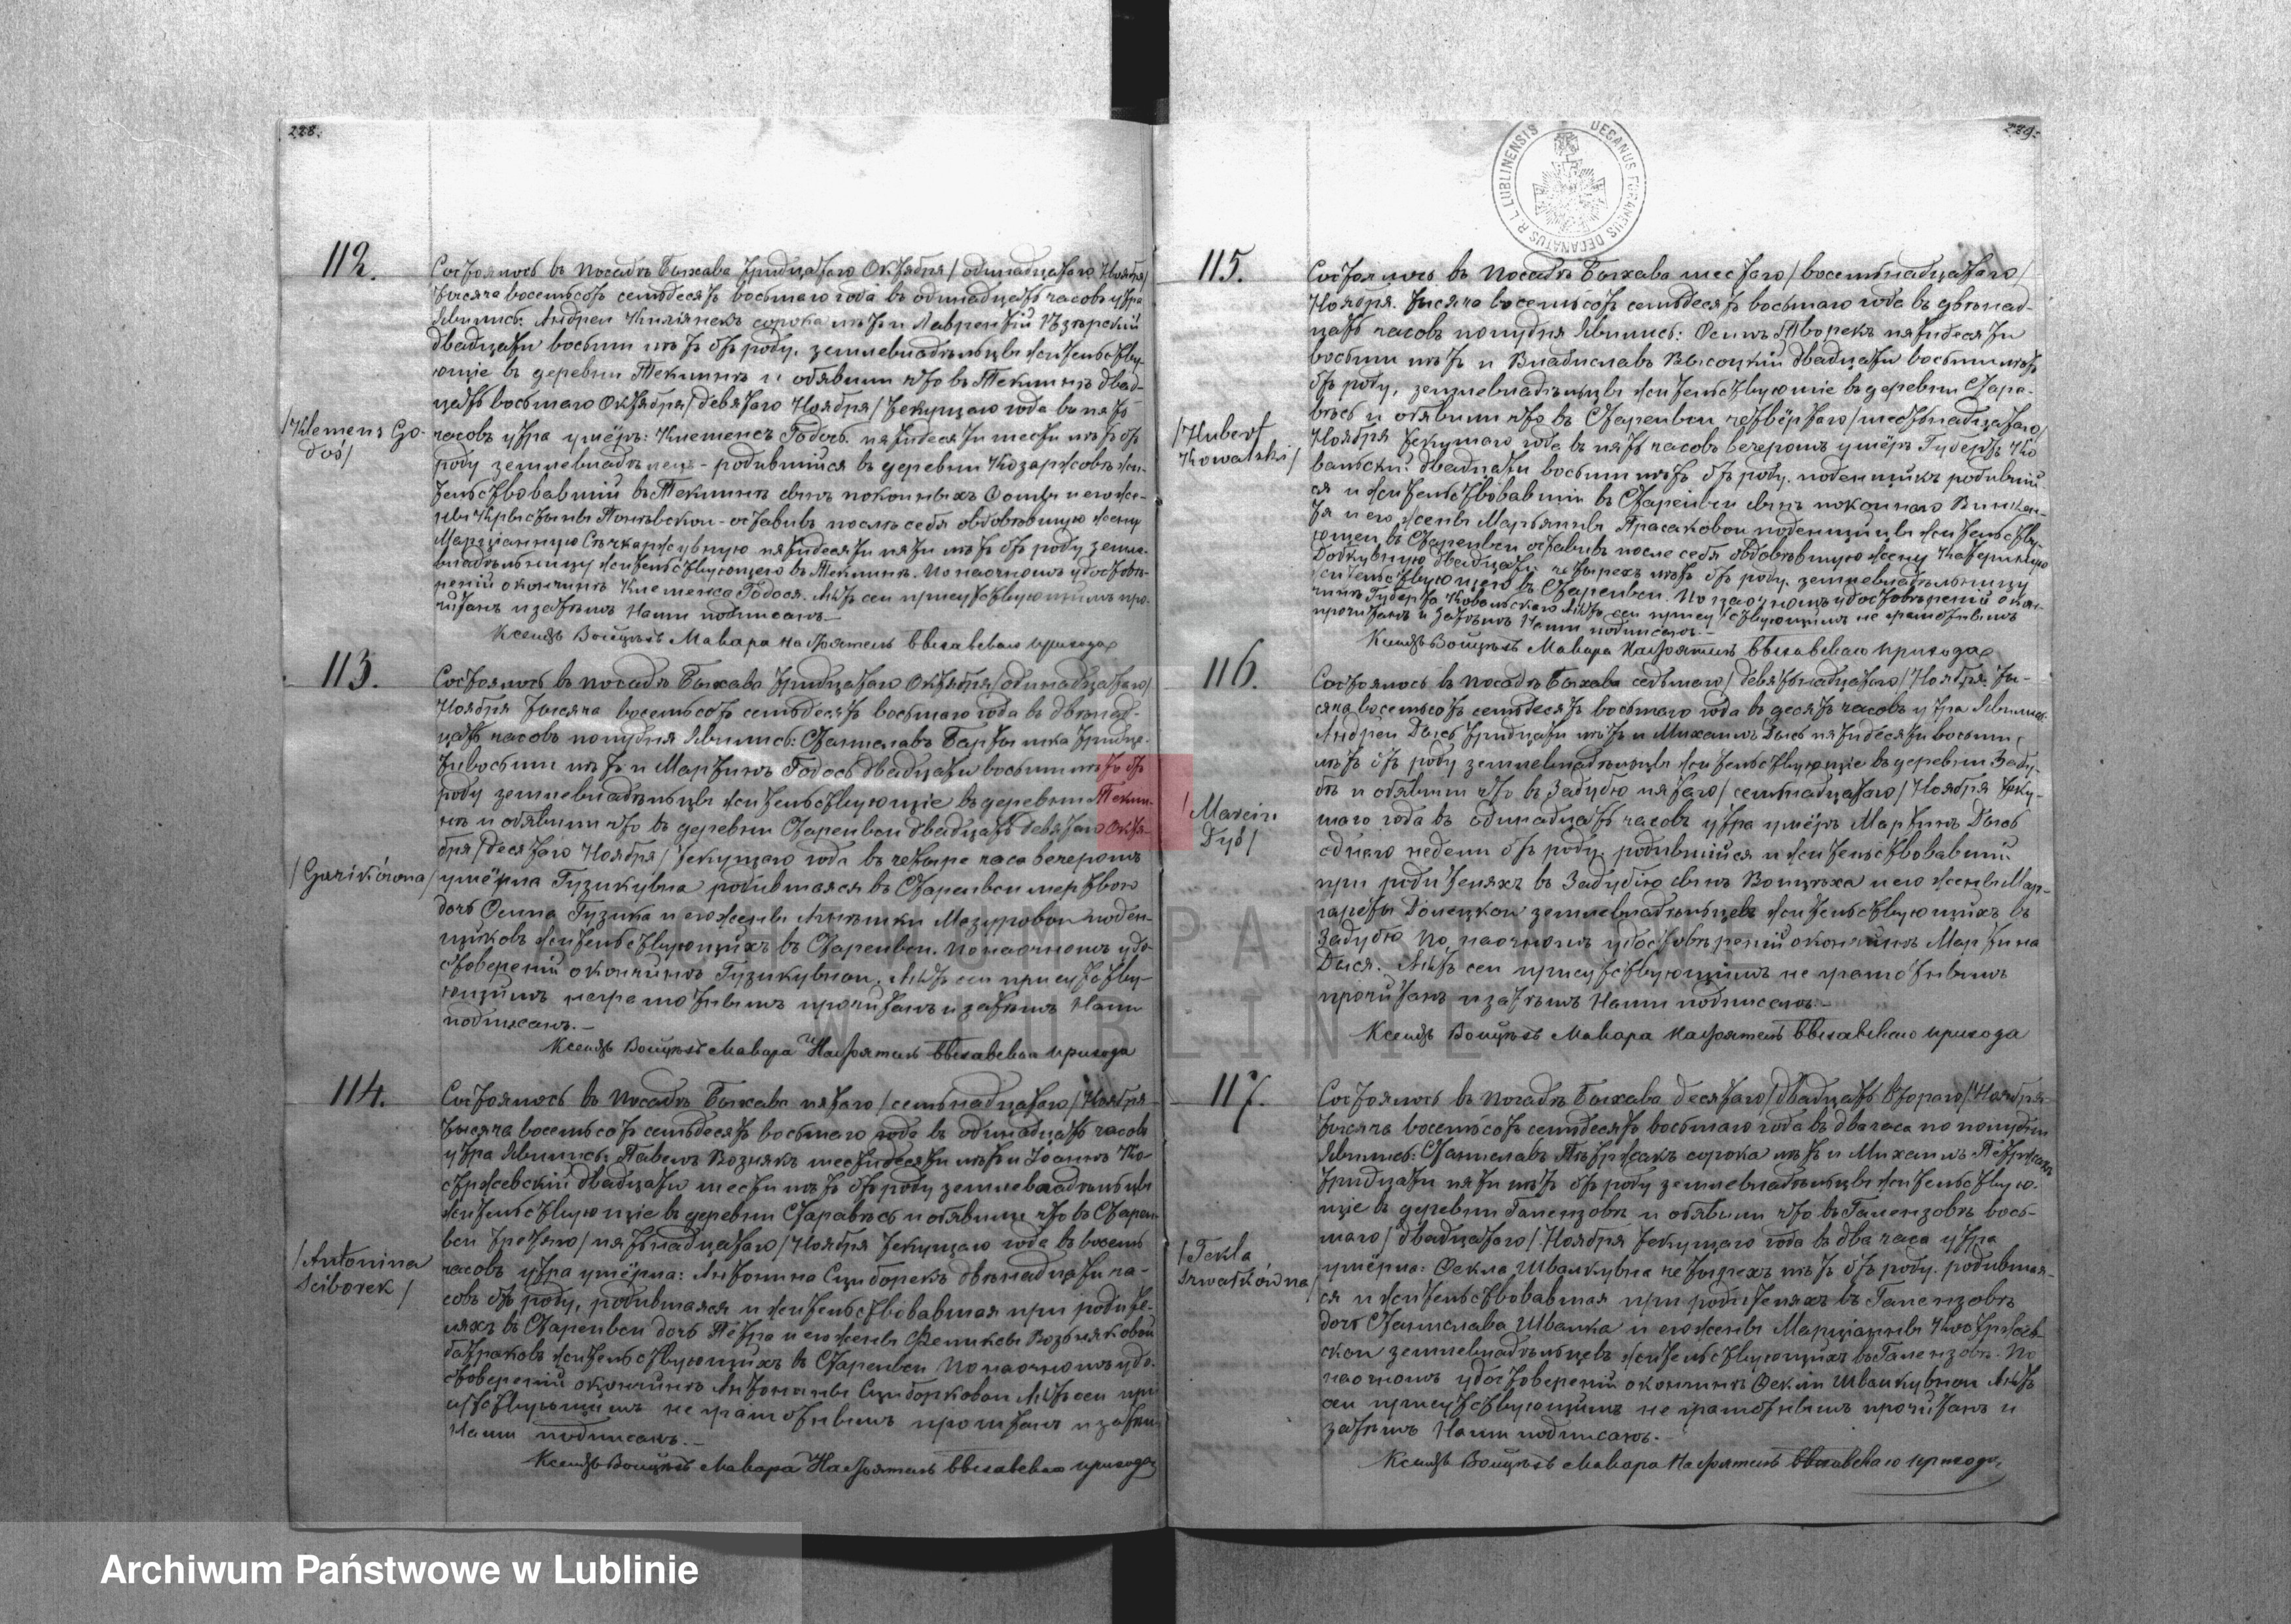 228.
112.
Состоялось въ посадѣ Быхава тридцатаго Октября /одинадцатаго Ноября/
тысяча восемьсотъ семьдесятъ восьмаго года въ одинадцать часовъ утра
Явились: Андрей сорока лѣтъ и Лаврентій
двадцати восьми лѣтъ отъ роду, землевладѣльцы жительству-
ющіе въ деревни Теклинѣ и обявили что въ Теклинѣ двад-
цать восьмаго Октября /девятаго Ноября/ текущаго года въ пять
/Klemens Go-
doś/
часовъ утра умёръ: Клеменсъ Годось. пятидесяти шести лѣтъ отъ
роду землевладѣлецъ - родившійся въ деревни Козаржовѣ жи-
тельствовавшій въ Теклинѣ сынъ покойныхъ Фомы и его же-
ны Крыстыны - оставивъ послѣ себя овдовѣвшую жену
Марціанну пятидесяти пяти лѣтъ отъ роду земле-
владѣльницу жительствующею въ Теклинѣ. По наочномъ удостовѣ-
реній о кончинѣ Клеменса Годося. Актъ сей присутствующимъ про-
читанъ и затѣмъ Нами подписанъ.—
Ксендзъ Войцѣхъ Мавара Настоятель Быхавскаго прихода
113.
Состоялось въ посадѣ Быхава тридцатаго Октября /одинадцатаго/
Ноября тысяча восемьсотъ семьдесятъ восьмаго года въ двѣнад-
цать часовъ полудня Явились: Станиславъ тридца-
ти восьми лѣтъ и Мартинъ Годось двадцати восьми лѣтъ отъ
роду землевладѣльцы жительствующіе въ деревни Текли-
нѣ и обявили что въ деревни Старейвси двадцать девятаго Октя-
бря /десятаго Ноября/ текущаго года въ четыре часа вечеромъ
/Guzikówna/
умёрла Гузикувна родившаяся въ Старейвси мертвою
дочь Осипа Гузика и его жены Агнѣшки Мазуровой поден-
щиковъ жительствующихъ въ Старейвси. По наочномъ удо-
стовереній о кончинѣ Гузикувной. Актъ сей присутству-
ющимъ неграмотнымъ прочитанъ и затѣмъ Нами
подписанъ.—
Ксендзъ Войцѣхъ Мавара Настоятель Быхавскаго прихода
114.
Состоялось въ посадѣ Быхава пятаго /семьнадцатаго/ Ноября
тысяча восемьсотъ семьдесятъ восьмаго года въ одинадцать часовъ
утра Явились: Павелъ Вознякъ шестидесяти лѣтъ и Іоаннъ Ко-
стржевскій двадцати шести лѣтъ отъ роду землевладѣльцы
жительствующіе въ деревни Старавѣсь и обявили что въ Старей-
вси третяго /пятьнадцатаго/ Ноября текущаго года въ восемь
/Antonina
Sciborek/
часовъ утра умёрла: Антонина Сциборекъ двѣнадцати ча-
совъ отъ роду, родившаяся и жительствовавшая при родите-
ляхъ въ Старейвси дочь Петра и его жены Феликсы Возьняковой
батраковъ жительствующихъ въ Старейвси По наочномъ удо-
стовереній о кончинѣ Антонины Сциборковой Актъ сей при
сутствующимъ не грамотнымъ прочитанъ и затѣмъ
Нами подписанъ.—
Ксендзъ Войцѣхъ Мавара Настоятель Быхавскаго прихода
229.
DECANUS FORANEUS DECANATUS R. L. LUBLINENSIS
115.
Состоялось въ посадѣ Быхава шестаго /восемьнадцатаго/
Ноября. тысяча восемьсотъ семьдесятъ восьмаго года въ двѣнад-
цать часовъ полудня Явились: Осипъ Творекъ пятидесяти
восьми лѣтъ и Владиславъ Высоцкій двадцати восьми лѣтъ
отъ роду, землевладѣльцы жительствующіе въ деревни Стара-
вѣсь и обявили что въ Старейвси четвёртаго /шестьнадцатаго/
/Hubert
Kowalski/
Ноября текущаго года въ пять часовъ вечеромъ умёръ Губертъ Ко
вальскій двадцати восьми лѣтъ отъ роду. поденщикъ родивший
ся и жительствовавшій въ Старейвси сынъ покойнаго Винцен-
тя и его жены Марьянны Прасаковой поденщицы жительству-
ющей въ Старейвси оставивъ после себя овдовѣвшую жену Катерину
двадцати четырехъ лѣтъ отъ роду. землевладѣльницу
жительствующею въ Старейвси. По наочномъ удостовѣреній о кон-
чинѣ Губерта Ковальскаго Актъ сей присутствующимъ не грамотнымъ
прочитанъ и затѣмъ Нами подписанъ.—
Ксендзъ Войцѣхъ Мавара Настоятель Быхавскаго прихода
116.
Состоялось въ посадѣ Быхава седьмаго /девятьнадцатаго/ Ноября. ты-
сяча восемьсотъ семьдесятъ восьмаго года въ десять часовъ утра Явились:
Андрей Дысь тридцати лѣтъ и Михаилъ Дысь пятидесяти восьми
лѣтъ отъ роду землевладѣльцы жительствующіе въ деревни Заду-
бѣ и обявили что въ Задубю пятаго /семьнадцатаго/ Ноября теку-
/Marcin
Dyś/
щаго года въ одинадцать часовъ утра умёръ Мартинъ Дысь
одного недели отъ роду, родившійся и жительствовавший
при родителяхъ въ Задубію сынъ Войцѣха и его жены Мар-
гареты Донецкой землевладѣльцевъ жительствующихъ въ
Задубю По наочномъ удостовѣреній о кончинѣ Мартина
Дыся. Актъ сей присутствующимъ не грамотнымъ
прочитанъ и затѣмъ Нами подписанъ.—
Ксендзъ Войцѣхъ Мавара Настоятель Быхавскаго прихода
117.
Состоялось въ посадѣ Быхава десятаго /двадцать втораго/ Ноября
тысяча восемьсотъ семьдесятъ восьмаго года въ два часа по полудни
Явились: Станиславъ Пѣтржакъ сорока лѣтъ и Михаилъ Пѣтржакъ
тридцати пяти лѣтъ отъ роду землевладѣльцы жительствую-
щіе въ деревни Галензовѣ и обявили что въ Галензовѣ вось-
маго /двадцатаго/ Ноября текущаго года въ два часа утра
/Tekla
Szwałkówna/
умёрла: Фекла Швалкувна четырехъ лѣтъ отъ роду. родившая-
ся и жительствовавшая при родителяхъ въ Галензовѣ
дочь Станислава Швалка и его жены Марціанны Костржев-
ской землевладѣльцевъ жительствующихъ въ Галензовѣ. По
наочномъ удостовереній о кончинѣ Феклы Швалкувной Актъ
сей присутствующимъ не грамотнымъ прочитанъ и
затѣмъ Нами подписанъ.-
Ксендзъ Войцѣхъ Мавара Настоятель Быхавскаго прихода
ARCHIWUM PAŃSTWOWE
W LUBLINIE
Archiwum Państwowe w Lublinie